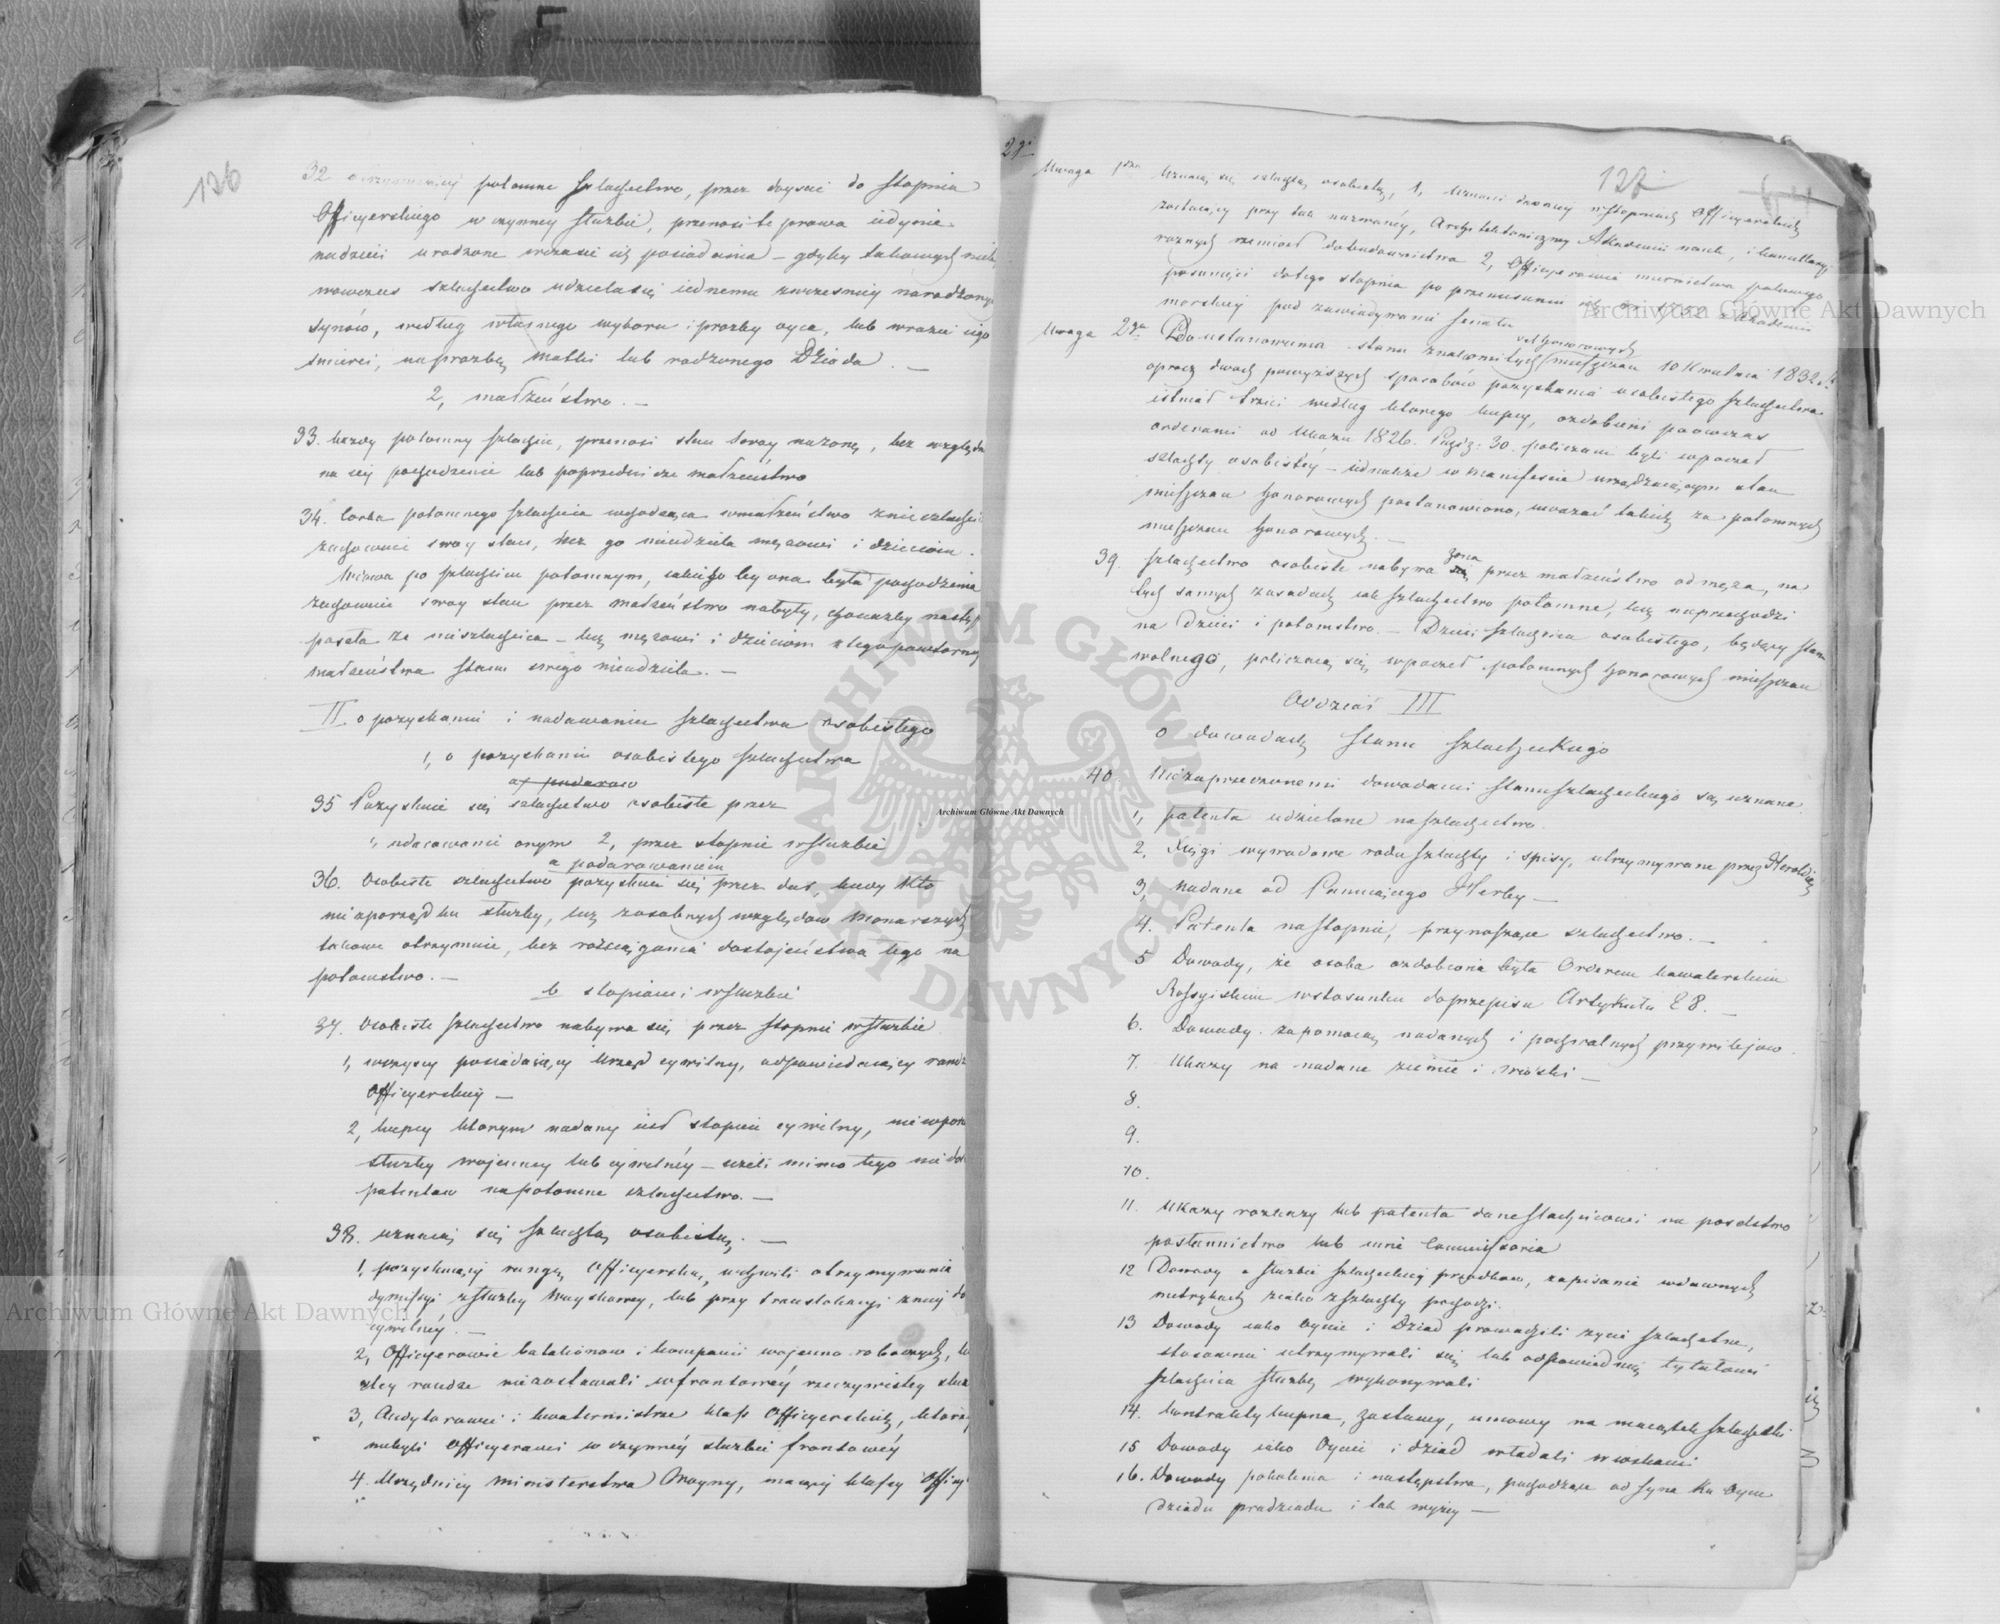 126
32 otrzymawszy potomne szlachectwo, przez doyscie do stopnia
Officyerskiego w czynney służbie, przenosi te prawa iedynie
na dzieci urodzone w czasie ich posiadania – gdyby takowych nieb
wowczas szlachectwo udziela się iednemu z wcześniey narodzonych
synów, według własnego wyboru i prozby oyca, lub w razie iego
śmierci, na prozbę matki lub rodzonego Dziada. –
2, małżeństwo. –
33. każdy potomny szlachcic, przenosi stan swoy na żonę, bez względu
na iey pochodzenie lub poprzednicze małżeństwo
34. Corka potomnego szlachcica wchodząca w małżeństwo z nieszlachci
zachowuie swoy stan, lecz go nieudziela mężowi i dzieciom.
Wdowa po szlachcicu potomnym, iakiego by ona była pochodzenia
zachowuie swoy stan przez małżeństwo nabyty, chociażby następ
poszła za nieszlachcica – lecz mężowi i dzieciom z tego powtornego
małżeństwa stanu swego nieudziela. –
II o pozyskaniu i nadawaniu szlachectwa osobistego
1, o pozyskaniu osobistego szlachectwa
a, podarow
35 Pozyskuie się szlachectwo osobiste przez
1, udarowanie onym 2, przez stopnie w służbie
a podarowaniem
36. Osobiste szlachectwo pozyskuie się przez dar, kiedy kto
nie z porządku służby, lecz z osobnych względow Monarszych
takowe otrzymuie, bez rościągania dostojeństwa tego na
potomstwo. –
b stopniami w służbie
37. Osobiste szlachectwo nabywa się przez stopnie w służbie
1, wszyscy posiadaiący Urząd cywilny, odpowiedaiący randze
Officyerskiey –
2, kupcy którym nadany iest stopień cywilny, nie w porz
służby wojenney lub cywilnéy – ieżeli mimo tego nie do
patentow na potomne szlachectwo. –
38. uznaią się szlachtą osobistą. –
1, pozyskuiący rangę Officyerską, w chwili otrzymywania
dymissyi z służby woyskowey, lub przy translokacyi z niey do
cywilnéy. –
2, Officyerowie batalionow i kompanii wojenno-roboczych,
ztey randze niezostawali w frontowéy rzeczywistey służ
3, Audytorowie i kwatermistrze klass Officyerskich, którzy
niebyli Officyerami w czynnéy służbie frontowéy
4. Urzędnicy ministerstwa Woyny, maiący klassy Officy
28.
127
Uwaga 1sza Uznaią się szlachtą osobistą, 1, Uznani dawniey w stopniach Officyerskich
zostaiący przy tak nazwanéy, Architektoniczney Akademii nauk, i konsultacyi
roznych rzemiosł dobudownictwa 2, Officyerowie murnictwa polowego
posunięci do tego stopnia po przemusowaniu
morskiey pod zawiadywaniem Senatu
Uwaga 2ga Do ustanowienia stanu znakomitych vel honorowych mieszczan 10 Kwietnia 1832.r
oprocz dwoch powyższych sposobów pozyskania osobistego szlachectwa
istniał trzeci według którego kupcy, ozdobieni poowczas
orderami od Ukazu 1826. Paźdz: 30. policzani byli w poczet
szlachty osobistéy – iednakże w Manifescie urządzaiącym stan
mieszczan honorowych postanowiono, uważać takich za potomnych
mieszczan honorowych. –
39. Szlachectwo osobiste nabywa żona przez małżeństwo od męża, na
tych samych zasadach iak szlachectwo potomne, lecz nieprzechodzi
na dzieci i potomstwo. – Dzieci szlachcica osobistego, będący stanu
wolnego, policzaią się w poczet potomnych honorowych mieszczan
Oddział III
o dowodach stanu szlacheckiego
40. Niezaprzeczonemi dowodami stanu szlacheckiego są uznane
1, patenta udzielone na szlachectwo.
2, Xięgi wywodowe rodu szlachty i spisy, utrzymywane przez Heroldią
3, nadane od Panuiącego Herby –
4. Patenta na stopnie, przynoszące szlachectwo. –
5 Dowody, że osoba ozdobiona była Orderem kawalerskim
Rossyiskim w stosunku do przepisu Artykułu 28. –
6. Dowody za pomocą nadanych i pochwalnych przywilejow.
7. Ukazy na nadane ziemie i wioski –
8.
9.
10.
11. Ukazy rozkazy lub patenta dane szlachcicowi na poselstwo
posłannictwo lub inne Commissoria
12 Dowody o służbie szlacheckiey przodkow, zapisanie w dawnych
metrykach ze iako z szlachty pochodzi.
13 Dowody iako Oyciec i Dziad prowadzili życie szlachetne,
stosownie utrzymywali się lub odpowiednią tytułowi
szlachcica służbę wykonywali
14. kontrakty kupna, zastawy, umowy na maiątek szlachecki
15 Dowody iako Oyciec i dziad władali wioskami
16. Dowody pokolenia i następstwa, pochodzące od syna ku oycu
dziadu pradziadu i tak wyżey –
Archiwum Główne Akt Dawnych
Archiwum Główne Akt Dawnych
Archiwum Główne Akt Dawnych
ARCHIWUM GŁÓWNE AKT DAWNYCH